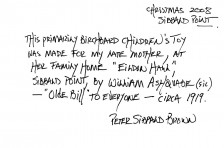 CHRISTMAS 2008
SIBBALD POINT.
THIS PRIMARILY BIRCHBARK CHILDREN'S TOY
WAS MADE FOR MY LATE MOTHER, AT
HER FAMILY HOME "EILDON HALL",
SIBBALD POINT, BY WILLIAM ASHQUABE (sic)
— "OLDE BILL" TO EVERYONE — CIRCA 1919.
PETER SIBBALD BROWN